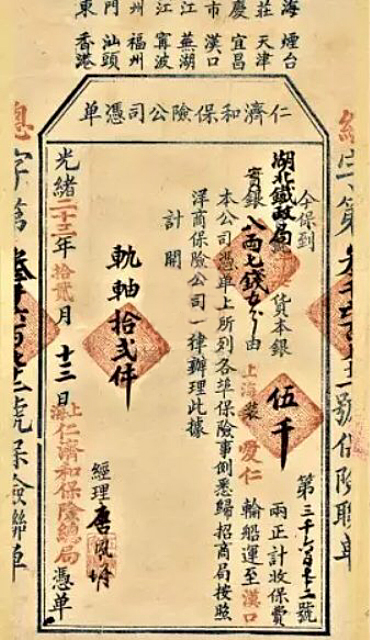 海 煙台
莊 天津
慶 宜昌
市 漢口
江 蕪湖
江 寧波
州 福州
門 汕頭
東 香港
仁濟和保險公司憑單
號保險聯單
第三千六百七十二號
今保到
湖北鐵政局 貨本銀伍千兩正計收保費
實銀八兩七錢五分由上海裝愛仁輪船運至漢口
本公司憑單上所列各埠保險事例悉歸招商局按照
洋商保險公司一律辦理此據
計開
軌軸拾弍件
經理唐鳳墀
光緒二十三年拾貳月十三日上海仁濟和保險總局憑單
總字第
號保險聯單